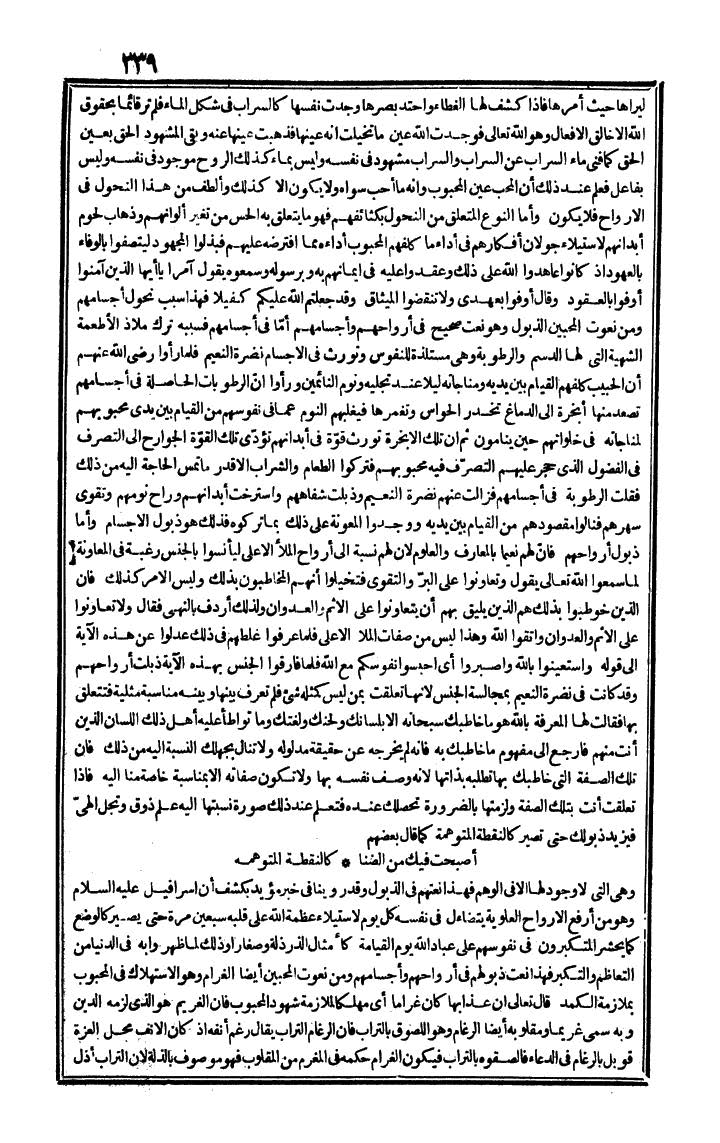 ٣٣٩
ليراها حيث أمرها فاذا كشف لها الغطاء واحتد بصرها وجدت نفسها كالسراب في شكل الماء فلم تر قائما بحقوق
الله الا خالق الافعال وهو الله تعالى فوجدت الله عين ما تخيلت انه عينها فذهبت عينها عنه وبقي المشهود الحق بعين
الحق كما فني ماء السراب عن السراب والسراب مشهود في نفسه وليس بماء كذلك الروح موجود في نفسه وليس
بفاعل فعلم عند ذلك أن المحب عين المحبوب وانه ما أحب سواه ولا يكون الا كذلك وألطف من هذا النحول في
الارواح فلا يكون وأما النوع المتعلق من النحول بكثائفهم فهو ما يتعلق به الحس من تغير ألوانهم وذهاب لحوم
أبدانهم لاستيلاء جولان أفكارهم في أداء ما كلفهم المحبوب أداءه مما افترضه عليهم فبذلوا المجهود ليتصفوا بالوفاء
بالعهود اذ كانوا عاهدوا الله على ذلك وعقدوا عليه في ايمانهم به وبرسوله وسمعوه يقول آمرا يا أيها الذين آمنوا
أوفوا بالعقود وقال أوفوا بعهدي ولا تنقضوا الميثاق وقد جعلتم الله عليكم كفيلا فهذا سبب نحول أجسامهم
ومن نعوت المحبين الذبول وهو نعت صحيح في أرواحهم وأجسامهم أمّا في أجسامهم فسببه ترك ملاذ الأطعمة
الشهية التي لها الدسم والرطوبة وهي مستلذة للنفوس وتورث في الاجسام نضرة النعيم فلما رأوا رضي الله عنهم
أن الحبيب كلفهم القيام بين يديه ومناجاته ليلا عند تجليه ونوم النائمين ورأوا انّ الرطوبات الحاصلة في أجسامهم
تصعد منها أبخرة الى الدماغ تخدر الحواس وتغمرها فيغلبهم النوم عما في نفوسهم من القيام بين يدي محبوبهم
لمناجاته في خلواتهم حين ينامون ثم ان تلك الابخرة تورث قوّة في أبدانهم تؤدّي تلك القوّة الجوارح الى التصرف
في الفضول الذي حجر عليهم التصرّف فيه محبوبهم فتركوا الطعام والشراب الا قدر ما تمس الحاجة اليه من ذلك
فقلت الرطوبة في أجسامهم فزالت عنهم نضرة النعيم وذبلت شفاههم واسترخت أبدانهم وراح نومهم وتقوى
سهرهم فنالوا مقصودهم من القيام بين يديه ووجدوا المعونة على ذلك بما تركوه فذلك هو ذبول الاجسام وأما
ذبول أرواحهم فانّ لهم نعيما بالمعارف والعلوم لان لهم نسبة الى أرواح الملأ الاعلى ليأنسوا بالجنس رغبة في المعاونة
لما سمعوا الله تعالى يقول وتعاونوا على البرّ والتقوى فتخيلوا أنهم المخاطبون بذلك وليس الامر كذلك فان
الذين خوطبوا بذلك هم الذين يليق بهم أن يتعاونوا على الاثم والعدوان ولذلك أردف بالنهي فقال ولا تعاونوا
على الاثم والعدوان واتقوا الله وهذا ليس من صفات الملا الاعلى فلما عرفوا غلطهم في ذلك عدلوا عن هذه الآية
الى قوله واستعينوا بالله واصبروا أي احبسوا نفوسكم مع الله فلما فارقوا الجنس بهذه الآية ذبلت أرواحهم
وقد كانت في نضرة النعيم بمجالسة الجنس لانها تعلقت بمن ليس كمثله شئ فلم تعرف بينها وبينه مناسبة مثلية فتتعلق
بها فقالت لها المعرفة بالله هو ما خاطبك سبحانه الا بلسانك ولحنك ولغتك وما تواطأ عليه أهل ذلك اللسان الذين
أنت منهم فارجع الى مفهوم ما خاطبك به فانه لم يخرجه عن حقيقة مدلوله ولا تنال بجهلك النسبة اليه من ذلك فان
تلك الصفة التي خاطبك بها تطلبه بذاتها لانه وصف نفسه بها ولا تكون صفاته الا بمناسبة خاصة منا اليه فاذا
تعلقت أنت بتلك الصفة ولزمتها بالضرورة تحصلك عنده فتعلم عند ذلك صورة نسبتها اليه علم ذوق وتجل الهيّ
فيزيد ذبولك حتى تصير كالنقطة المتوهمة كما قال بعضهم
أصبحت فيك من الضنا * كالنقطة المتوهمه
وهي التي لا وجود لها الا في الوهم فهذا نعتهم في الذبول وقد روينا في خبر مؤيد بكشف أن اسرافيل عليه السلام
وهو من أرفع الارواح العلوية يتضاءل في نفسه كل يوم لاستيلاء عظمة الله على قلبه سبعين مرة حتى يصير كالوضع
كما يحشر المتكبرون في نفوسهم على عباد الله يوم القيامة كأمثال الذر ذلة وصغارا وذلك لما ظهروا به في الدنيا من
التعاظم والتكبر فهذا نعت ذبولهم في أرواحهم وأجسامهم ومن نعوت المحبين أيضا الغرام وهو الاستهلاك في المحبوب
بملازمة الكمد قال تعالى ان عذابها كان غراما أي مهلكا لملازمة شهود المحبوب فان الغريم هو الذي لزمه الدين
وبه سمي غريما ومقلوبه أيضا الرغام وهو اللصوق بالتراب فان الرغام التراب يقال رغم أنفه اذ كان الانف محل العزة
قوبل بالرغام في الدعاء فألصقوه بالتراب فيكون الغرام حكمه في المغرم من المقلوب فهو موصوف بالذلة لان التراب أذل